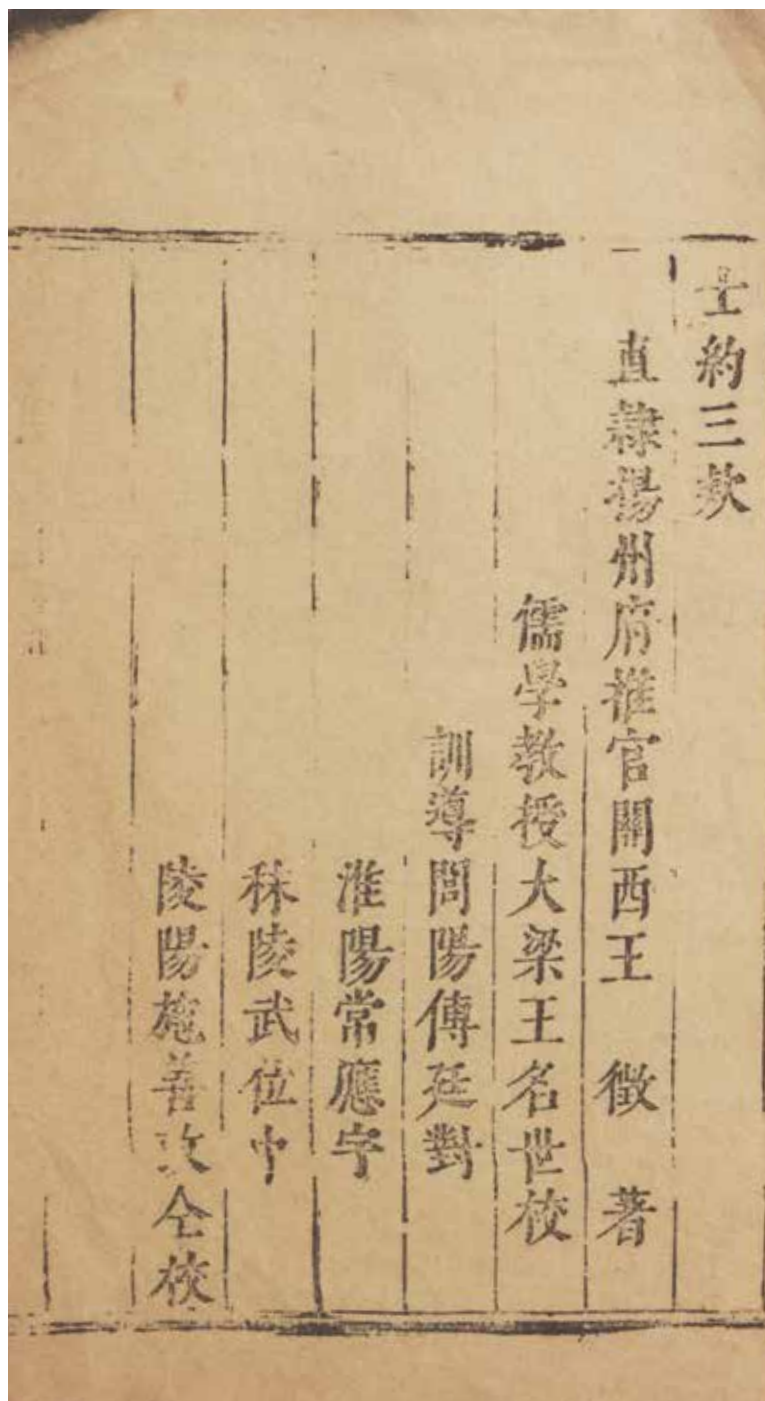 士約三款
直隷揚州府推官關西王 徵 著
儒學教授大梁王名世校
訓導閭陽傅廷對
淮陽常應宇
秣陵武位中
陵陽施善政仝校